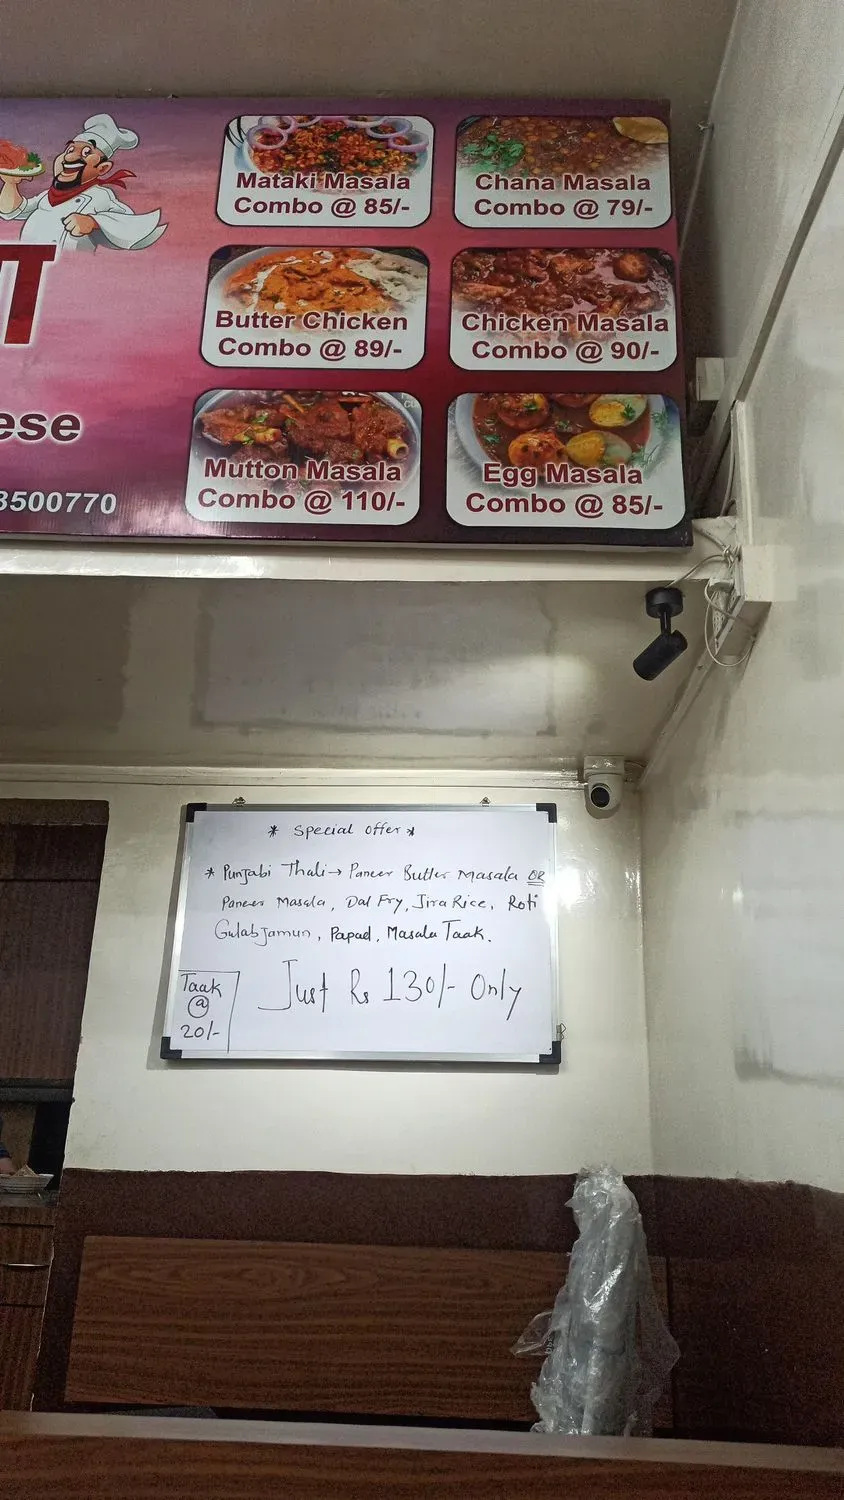 Mataki Masala
Combo @ 85/-
Chana Masala
Combo @ 79/-
Butter Chicken
Combo @ 89/-
Chicken Masala
Combo @ 90/-
Mutton Masala
Combo @ 110/-
Egg Masala
Combo @ 85/-
ese
3500770
* Special Offer *
* Punjabi Thali → Paneer Butter Masala OR
Paneer Masala, Dal Fry, Jira Rice, Roti
Gulab Jamun, Papad, Masala Taak.
Just Rs 130/- Only
Taak
@
20/-